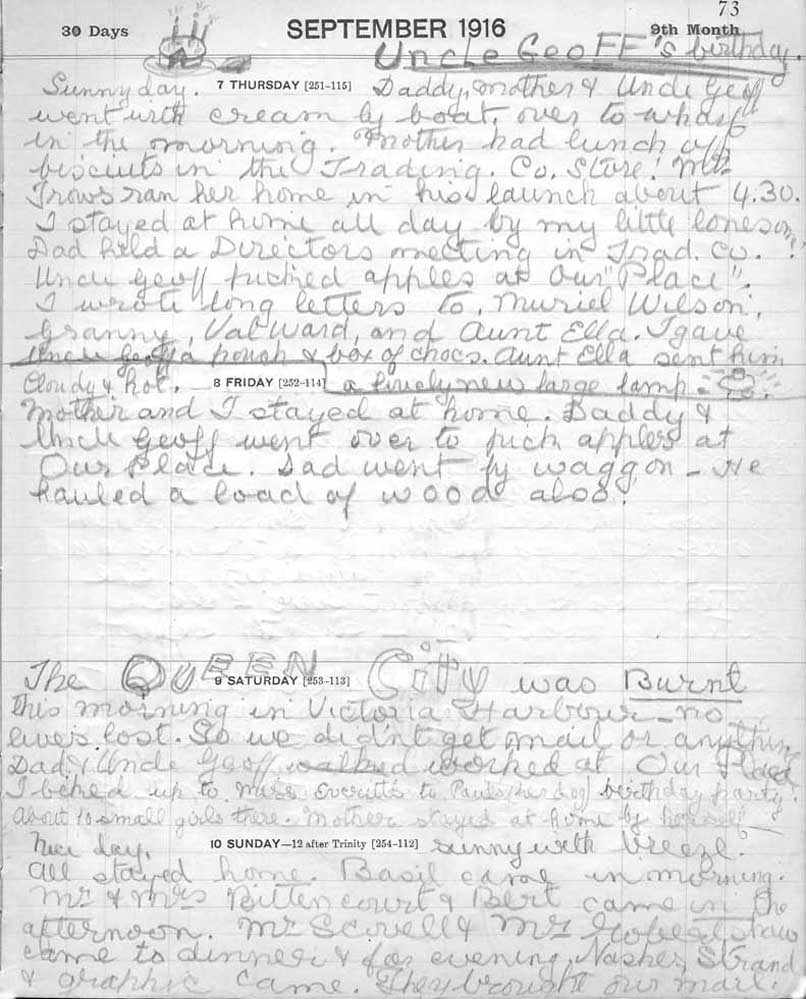 73
30 Days SEPTEMBER 1916 9th Month
Uncle GeoFF's birthday.
Sunny day. 7 THURSDAY [251-115] Daddy, mother & Uncle Geoff
went with cream by boat, over to wharf
in the morning. Mother had lunch off
biscuits in the Trading. Co. Store. Mr.
Trows ran her home in his launch about 4.30.
I stayed at home all day by my little lonesom
Dad held a Directors meeting in Trad. Co.
Uncle Geoff picked apples at Our "Place".
I wrote long letters to, Muriel Wilson,
Granny, Val Ward, and Aunt Ella. I gave
Uncle Geoff a pouch & box of chocs. Aunt Ella sent him
Cloudy & hot. 8 FRIDAY [252-114] a lovely new large lamp.
Mother and I stayed at home. Daddy &
Uncle Geoff went over to pick apples at
Our Place. Dad went by waggon - He
hauled a load of wood also.
The QUEEN City was Burnt
9 SATURDAY [253-113]
this morning in Victoria Harbour - no
lives lost. So we didn't get mail or anything.
Dad & Uncle Geoff walked worked at Our Place
I biked up to Miss Everitts to Pauls (her dog) birthday party
About 10 small girls there. Mother stayed at home by herself
Nice day. 10 SUNDAY—12 after Trinity [254-112] sunny with breeze.
All stayed home. Basil came in morning.
Mr & Mrs Bittencourt & Bert came in the
afternoon. Mr Scovell & Mr
came to dinner & for evening. Nashes, Strand
& graphic came. They brought our mail.